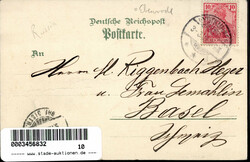 Deutsche Reichspost
Postkarte.
10
Herrn H. Riggenbach Meyer
u. Frau Gemahlin
Basel
Schweiz
0003456832
10
www.stade-auktionen.de